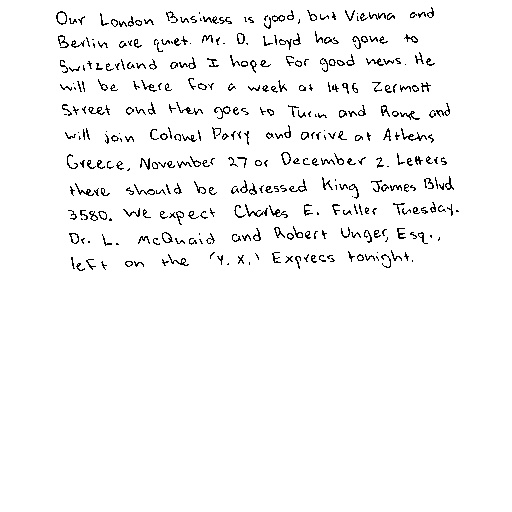 Our London Business is good, but Vienna and
Berlin are quiet. Mr. D. Lloyd has gone to
Switzerland and I hope for good news. He
will be there for a week at 1496 Zermott
Street and then goes to Turin and Rome and
will join Colonel Parry and arrive at Athens
Greece, November 27 or December 2. Letters
there should be addressed King James Blvd
3580. We expect Charles E. Fuller Tuesday.
Dr. L. McQuaid and Robert Unger, Esq.,
left on the 'Y. X.' Express tonight.